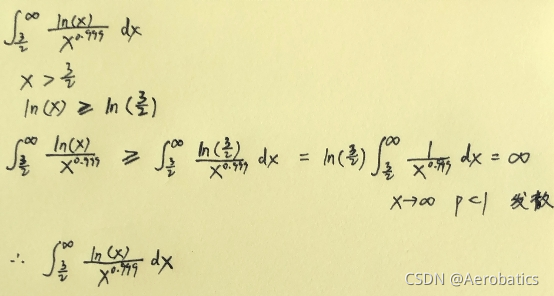 ∫_{3/2}^{∞} ln(x)/x^{0.999} dx
x > 3/2
ln(x) ≥ ln(3/2)
∫_{3/2}^{∞} ln(x)/x^{0.999} ≥ ∫_{3/2}^{∞} ln(3/2)/x^{0.999} dx = ln(3/2) ∫_{3/2}^{∞} 1/x^{0.999} dx = ∞
x→∞ p<1 发散
∴ ∫_{3/2}^{∞} ln(x)/x^{0.999} dx
CSDN @Aerobatics